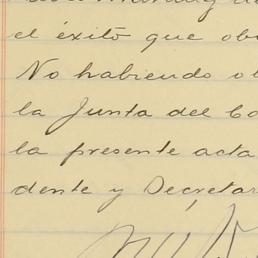 el éxito que ob
No habiendo o
la Junta del Co
la presente acta
dente y Secretar